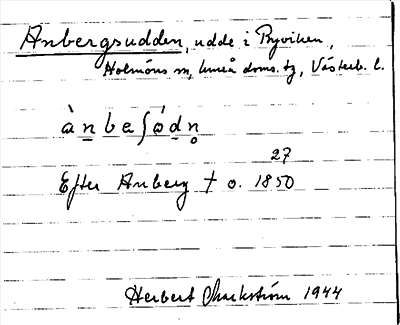 Anbergsudden, udde i Byviken,
Holmöns sn, Umeå doms. tg, Västerb. l.
ànbeʃódn̥
27
Efter Anberg † o. 1850
Herbert Markström 1944